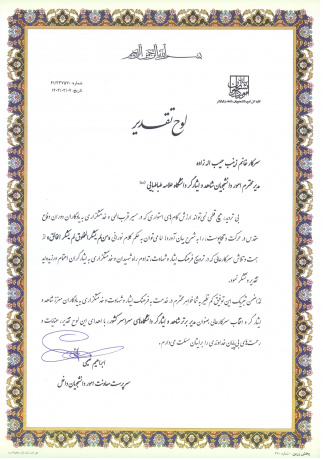 بسم الله الرحمن الرحیم
شماره
تاریخ
لوح تقدیر
سرکار خانم زینب حبیب اله زاده
مدیر محترم امور دانشجویان شاهد و ایثارگر دانشگاه علامه طباطبایی
بی تردید، هیچ قلمی نمی‌تواند ارزش گام‌های استواری که در مسیر قرب الهی و خدمتگزاری به یادگاران دوران دفاع
مقدس در حرکت و تکاپوست، را به شرح و بیان آورد؛ اما می‌توان به حکم کلام نورانی «من لم یشکر المخلوق لم یشکر الخالق» از
همت و تلاش سرکارعالی که در ترویج فرهنگ ایثار و شهادت، تداوم راه شهیدان و خدمتگزاری به ایثارگران اهتمام ورزیده‌اید
تقدیر و تشکر نمود.
لذا ضمن تبریک این توفیق کم نظیر به شما خواهر محترم در خدمت به فرهنگ ایثار و شهادت و خدمتگزاری به یادگاران معزز شاهد و
ایثارگر و انتخاب سرکارعالی بعنوان مدیر برتر شاهد و ایثارگر دانشگاه‌های سراسر کشور، با اهدای این لوح تقدیر، عنایات و
رحمت‌های بی‌پایان خداوندی را برایتان مسئلت می دارم.
ابراهیم
سرپرست معاونت امور دانشجویان داخل